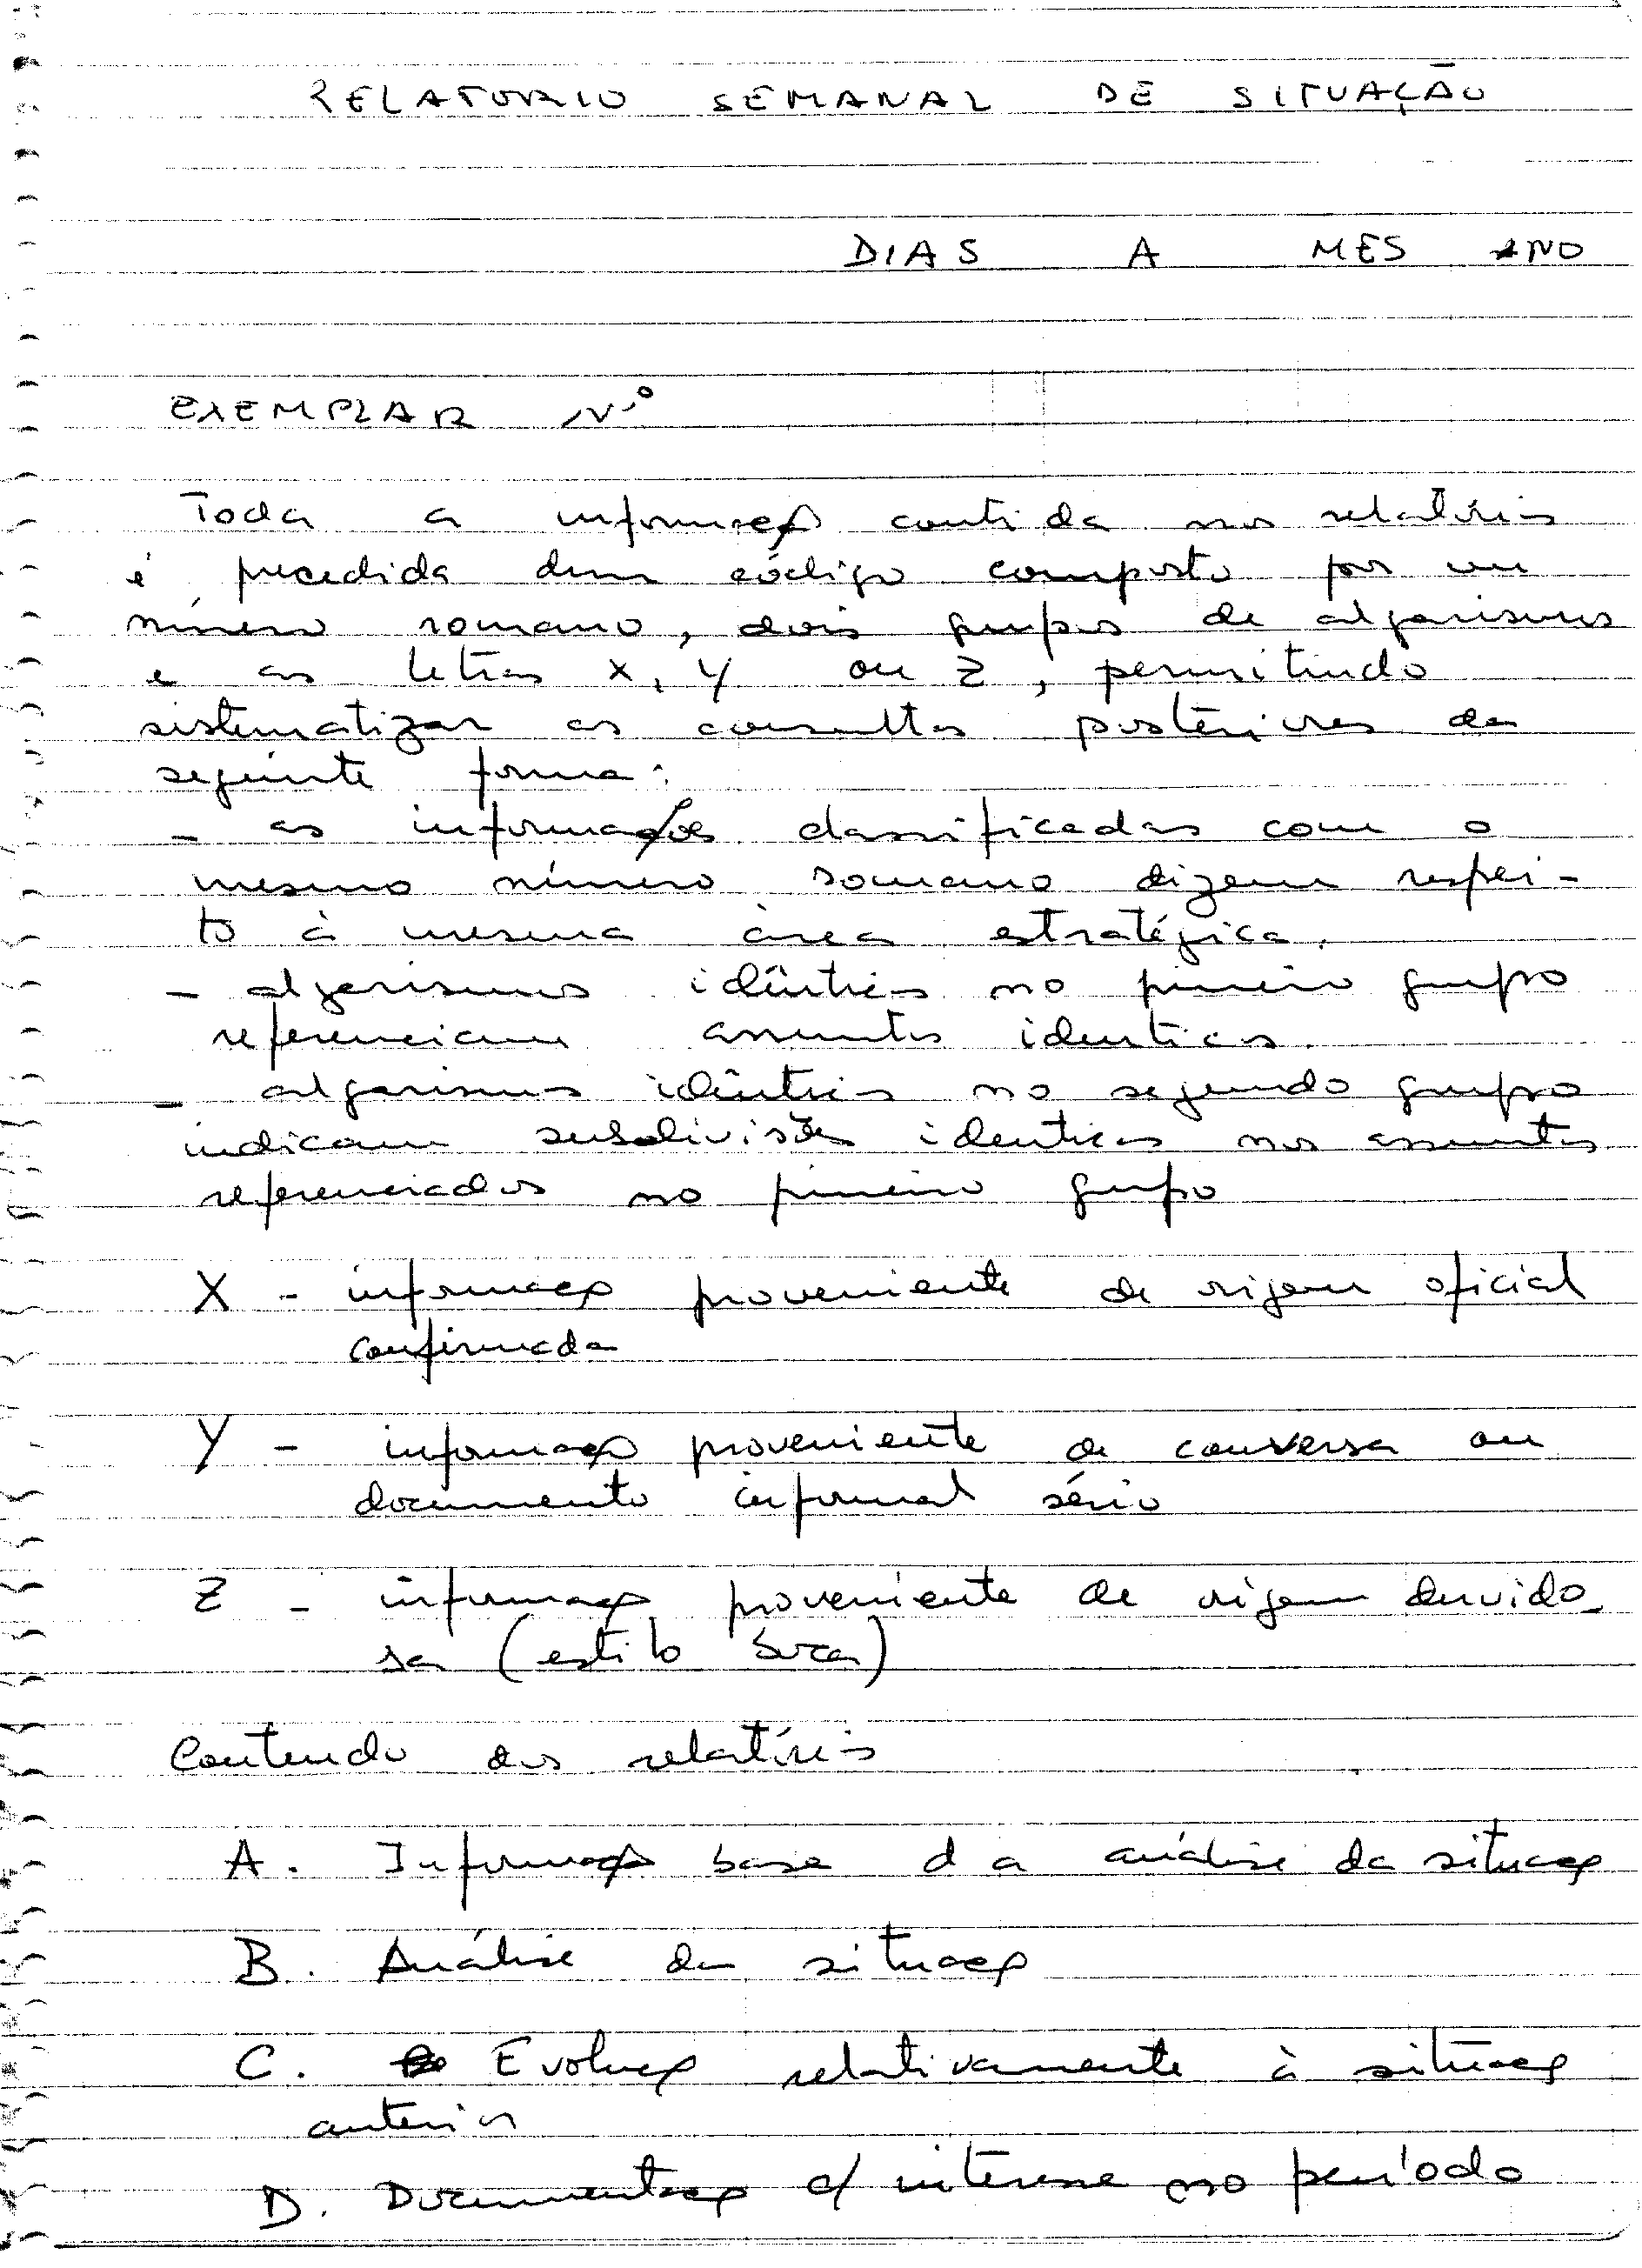 RELATORIO SEMANAL DE SITUAÇÃO
DIAS A MES ANO
EXEMPLAR Nº
Toda a informação contida nos relatórios
é precedida dum código composto por um
número romano, dois grupos de algarismos
e as letras X, Y ou Z, permitindo
sistematizar as consultas posteriores da
seguinte forma:
- as informações classificadas com o
mesmo número romano dizem respei-
to à mesma área estratégica.
- algarismos idênticos no primeiro grupo
referenciam assuntos identicos.
- algarismos idênticos no segundo grupo
indicam subdivisões identicas nos assuntos
referenciados no primeiro grupo
X - informação proveniente de origem oficial
confirmada
Y - informação proveniente de conversa ou
documento informal sério
Z - informação proveniente de origem duvido-
sa (estilo
Contendo os relatórios
A. Informação base d a análise da situação
B. Análise da situação
C. Evolução relativamente à situação
anterior
D. Documentação c/ interesse no período